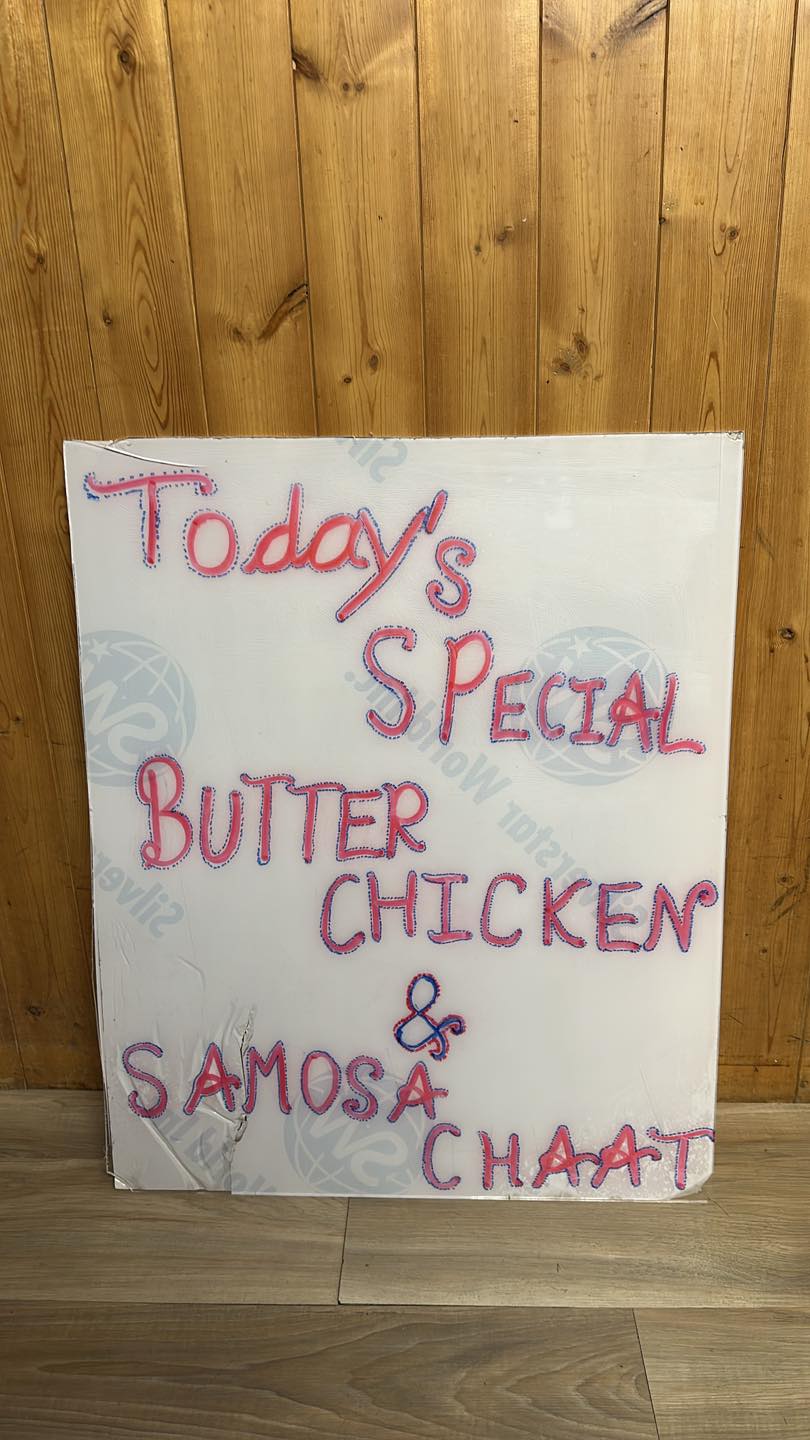 Today's
SPECIAL
BUTTER
CHICKEN
&
SAMOSA
CHAAT
Silverstar World Inc.
Silver